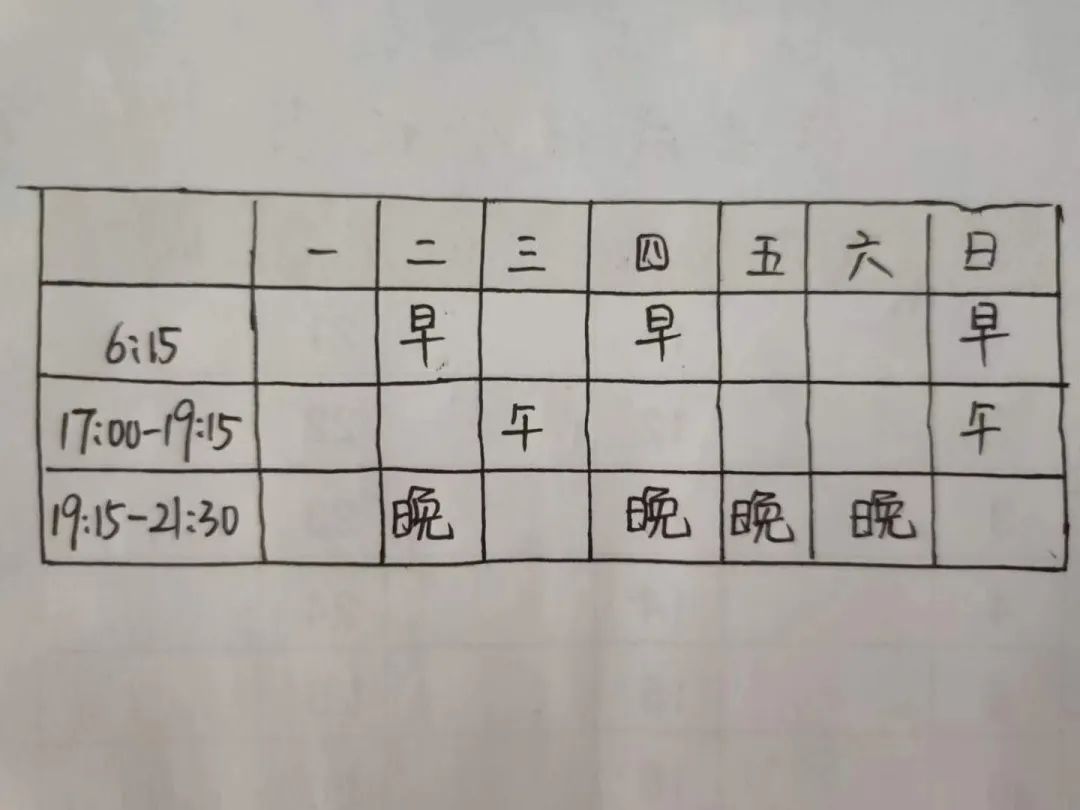 一 二 三 四 五 六 日
6:15 早 早 早
17:00-19:15 午 午
19:15-21:30 晚 晚 晚 晚